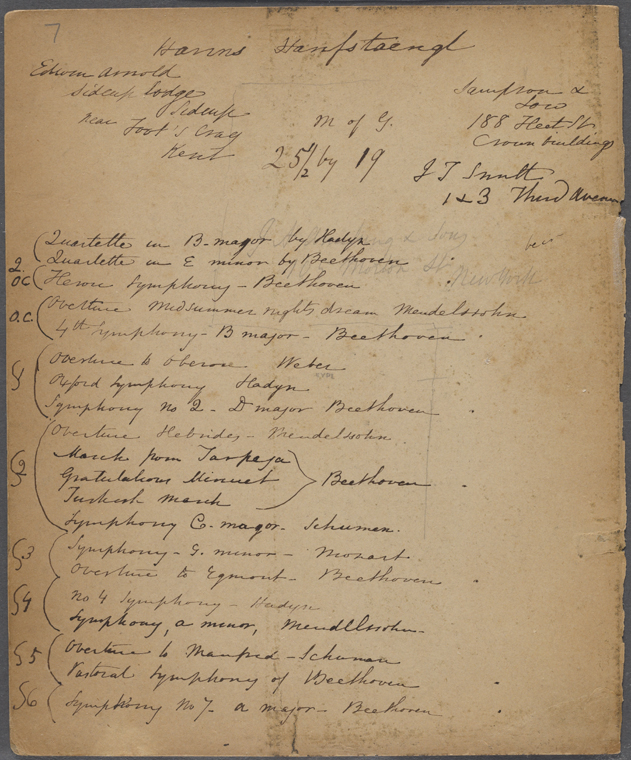 7
Hanns Hanfstaengl
Edwin Arnold
Sidcup Lodge
Sidcup
near Foot's Cray
Kent
M of G.
25 1/2 by 19
Sampson &
Low
188 Fleet St
Crown buildings
J T Smith
1 & 3 Third Avenue
& Sons
St
New York
Quartette in B. major by Hadyn
2. Quartette in E minor by Beethoven
OC Heroic Symphony - Beethoven
O.C Overture Midsummer nights dream Mendelssohn
4th Symphony - B major - Beethoven
S1 Overture to Oberon Weber
Oxford Symphony Hadyn
Symphony No 2 - D major Beethoven
Overture Hebrides - Mendelssohn
S2 March from Tarpeja
Gratulations Minuet Beethoven
Turkish march
Symphony C. magor - Schuman.
S3 Symphony - G. minor - Mozart
Overture to Egmont - Beethoven
S4 No 4 Symphony - Hadyn
Symphony, a minor, Mendelssohn -
S5 Overture to Manfred - Schuman
Pastoral Symphony of Beethoven
S6 Symphony No 7 - a major - Beethoven